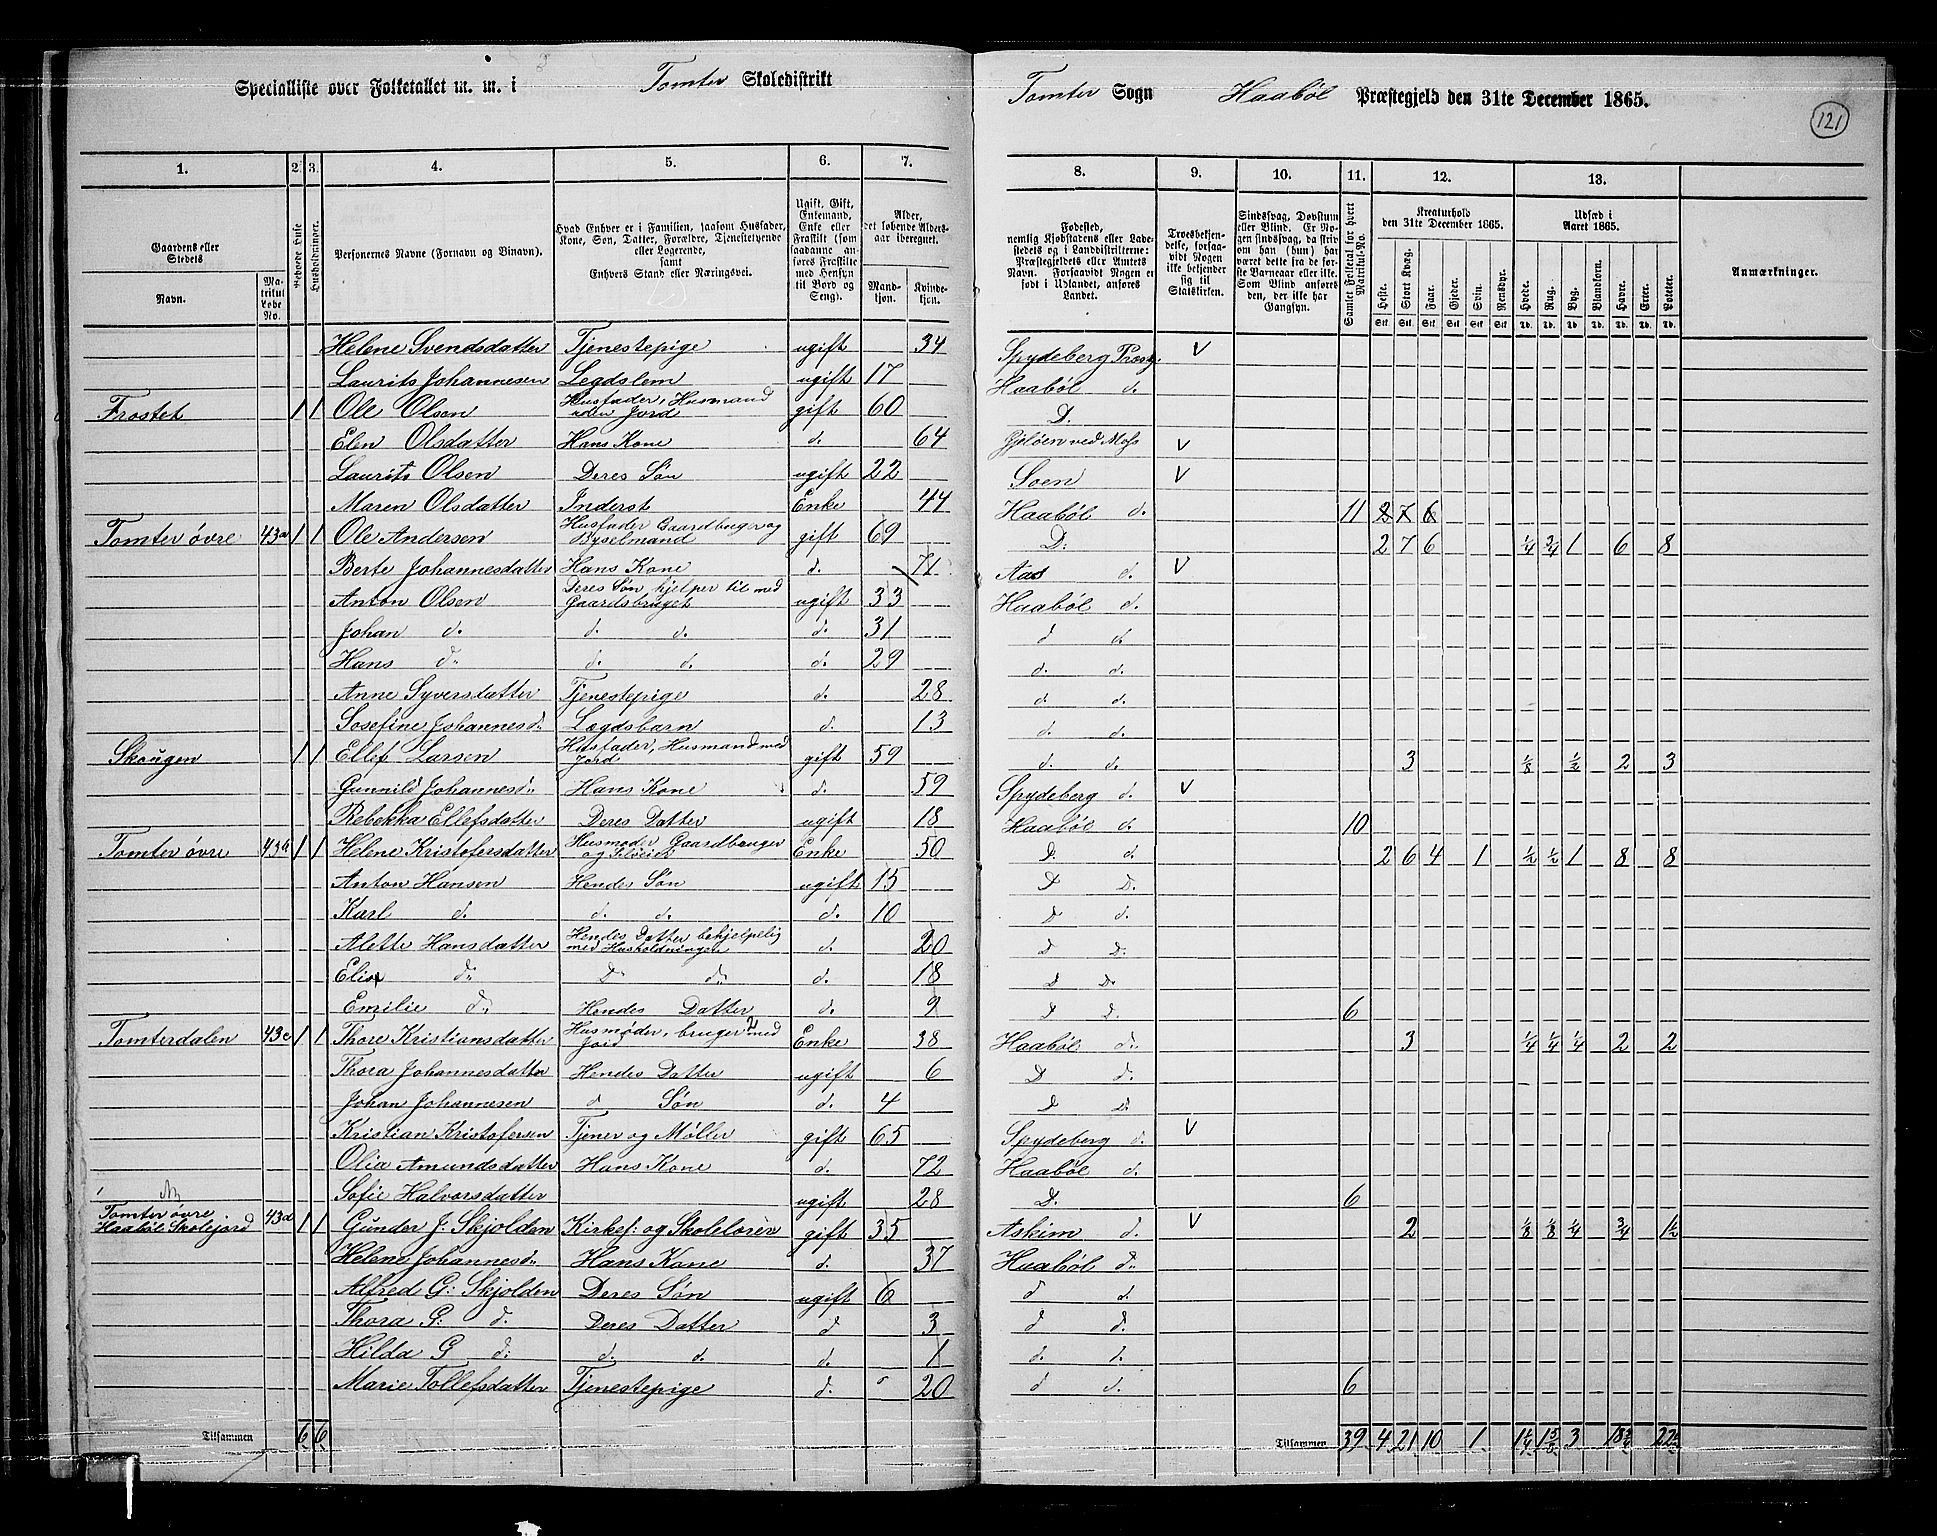 Specialliste over Folketallet m. m. i Tomter Skoledistrikt
Tomter Sogn Haabøl Præstegjeld den 31te December 1865.
121
1. 2. 3. 4. 5. 6. 7. 8. 9. 10. 11. 12. 13.
Gaardens eller Stedets Navn.
Matrikul Løbe No.
Beboede Huse
Husholdninger.
Personernes Navne (Fornavn og Binavn).
Hvad Enhver er i Familien, saasom Husfader, Kone, Søn, Datter, Forældre, Tjenestetyende eller Logerende, samt Enhvers Stand eller Næringsvei.
Ugift, Gift, Enkemand, Enke eller Fraskilt (som saadanne anføres Fraskilte med Hensyn til Bord og Seng).
Alder, det løbende Aldersaar iberegnet.
Mandkjøn. Kvindekjøn.
Fødested, nemlig Kjøbstadens eller Ladestedets og i Landdistrikterne: Præstegjeldets eller Amtets Navn. Forsaavidt Nogen er født i Udlandet, anføres Landet.
Troesbekjendelse, forsaavidt Nogen ikke bekjender sig til Statskirken.
Sindssvag, Døvstum eller Blind. Er Nogen sindssvag, da skriv om han (hun) har været dette fra første Barneaar eller ikke. Som Blind anføres den, der ikke har Gangsyn.
Samlet Folketal for hvert Matrikul-No.
Kreaturhold den 31te December 1865.
Heste. Stort Kvæg. Faar. Gjeder. Svin. Rensdyr.
Udsæd i Aaret 1865.
Hvede. Rug. Byg. Blandkorn. Havre. Erter. Poteter.
Anmærkninger.
Helene Svendsdatter Tjenestepige ugift 34 Spydeberg Præstg. V
Laurits Johannesen Legdslem ugift 17 Haabøl d.
Frostet 1 1 Ole Olsen Husfader, Husmand uden Jord gift 60 D.
Elen Olsdatter Hans Kone d. 64 Gjeløen ved Moss V
Laurits Olsen Deres Søn ugift 22 Soen V
Maren Olsdatter Inderst Enke 44 Haabøl d. 11 2 7 6
Tomter øvre 43a 1 1 Ole Andersen Husfader Gaardbruger og Byselmand gift 69 D: 2 7 6 1/4 3/4 1 6 8
Berte Johannesdatter Hans Kone d. 71 Aas d. V
Anton Olsen Deres Søn hjelper til med Gaardsbruget ugift 33 Haabøl d.
Johan d. d. d. d. 31 d d.
Hans d. d. d. d. 29 d. d.
Anne Syversdatter Tjenestepige d. 28 d. d.
Josefine Johannesd: Legdsbarn d. 13 d. d.
Skougen 1 1 Ellef Larsen Husfader, Husmand med Jord gift 59 d. d. 3 1/8 1/2 2 3
Gunnild Johannesd: Hans Kone d. 59 Spydeberg d. V
Rebekka Ellefsdatter Deres Datter ugift 18 Haabøl d. 10
Tomter øvre 43b 1 1 Helene Kristofersdatter Husmoder Gaardbruger og Selveier Enke 50 D. d. 2 6 4 1 1/2 1/2 1 8 8
Anton Hansen Hendes Søn ugift 15 D D.
Karl d. d. d. d. 10 D d.
Alette Hansdatter Hendes Datter behjelpelig med Husholdningen d. 20 D D.
Elise d: D d: d. 18 D D.
Emilie d: Hendes Datter d. 9 D D. 6
Tomterdalen 43c 1 1 Thore Kristiansdatter Husmoder, bruger med Jord Enke 38 Haabøl d: 3 1/4 1/4 1/4 2 2
Thora Johannesdatter Hendes Datter ugift 6 D d.
Johan Johannesen d Søn d. 4 D D.
Kristian Kristofersen Tjener og Møller gift 65 Spydeberg d. V
Olia Amundsdatter Hans Kone d. 72 Haabøl d.
Sofie Halvorsdatter ugift 28 D. 6
Tomter øvre
Haabøl Skolejord 43d 1 1 Gunder J: Skjolden Kirkes: og Skolelærer gift 35 Askim d. V 2 1/8 1/8 1/4 3/4 1 1/2
Helene Johannesd: Hans Kone d. 37 Haabøl d:
Alfred G: Skjolden Deres Søn ugift 6 d d.
Thora G: d. Deres Datter d 3 d d.
Hilda G d: d. d. d. 1 d. d.
Marie Tollefsdatter Tjenestepige d. 20 d d. 6
Tilsammen 6 6
Tilsammen 39 4 21 10 1 1 1/4 1 5/8 3 18 3/4 22 1/2